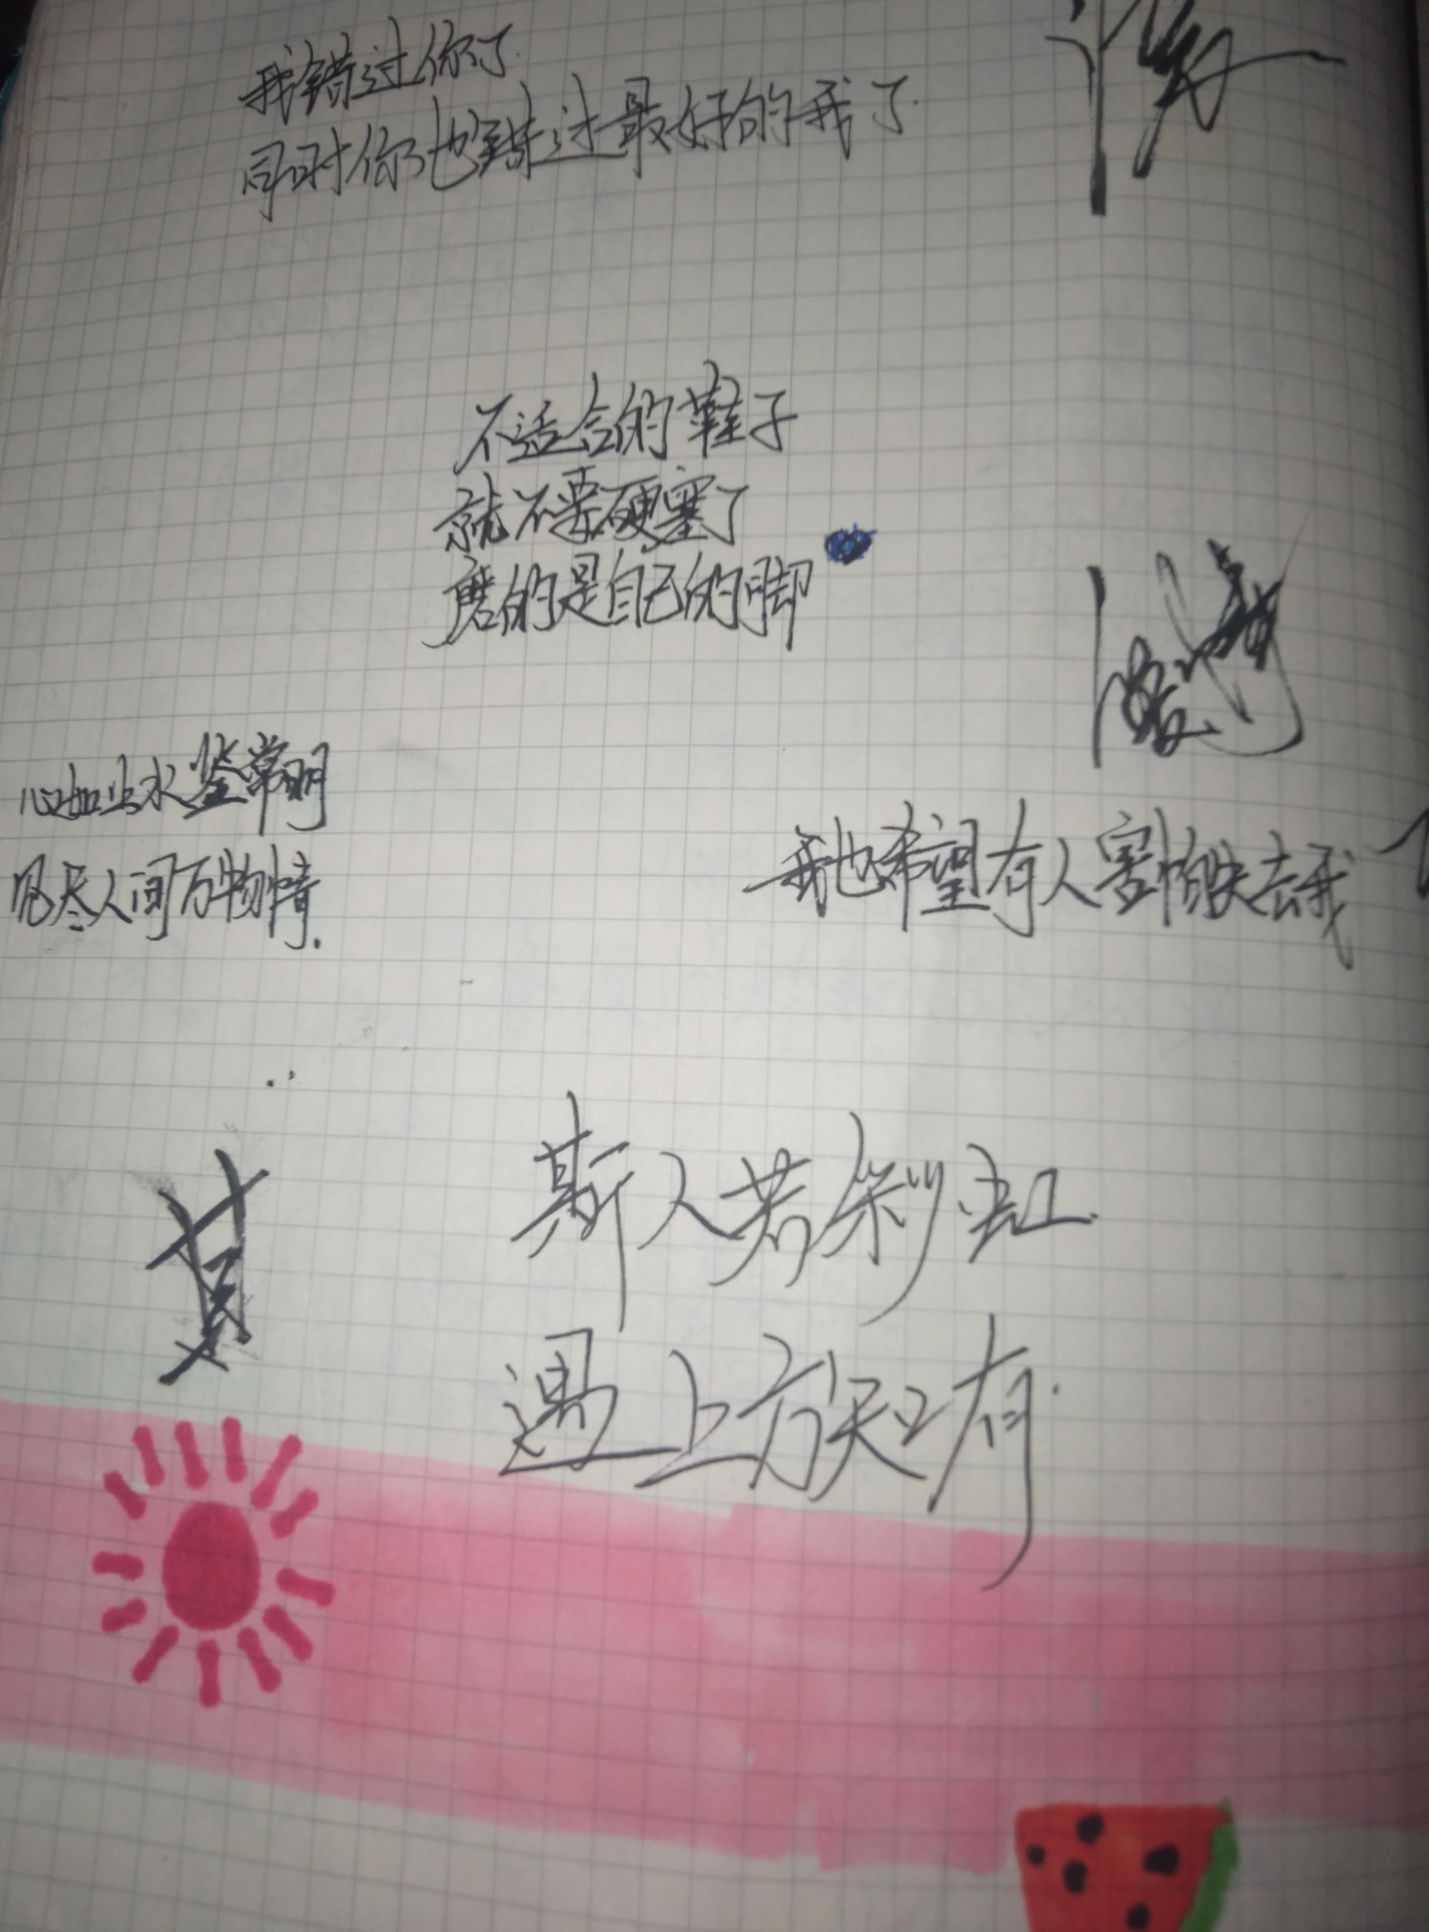 我错过你了
同时你也错过最好的我了
不适合的鞋子
就不要硬塞了
磨的是自己的脚
心如止水鉴常明
见尽人间万物情.
我也希望有人害怕失去我
斯人若彩虹.
遇上方知有.